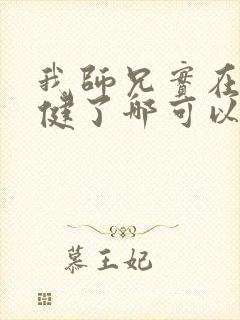 我師兄實在
健了哪可以
慕王妃